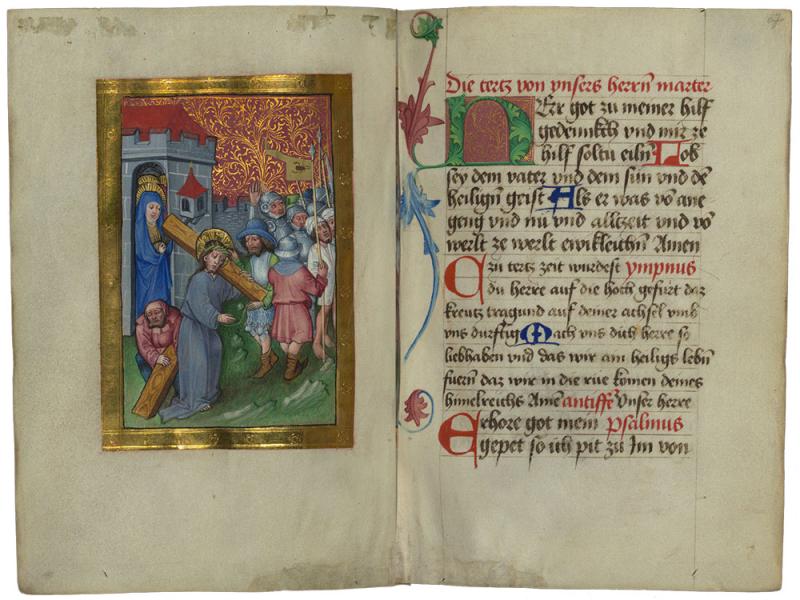 67
Die tertz von vnsers herrn̄ marter
HErr got zu meiner hilf
gedennkch vnd mir ze
hilf soltu eiln̄ Lob
sey dem vater vnd dem sun vnd dē
heilign̄ geist Als er was vō ane
geng vnd nu vnd alltzeit vnd vō
werlt ze werlt ewikleichn̄ Amen
Czu tertz zeit wurdest ympnus
du herre auf die hoch gefürt daz
kreutz tragund auf deiner achsel vmb
vns durftig Mach vns dich herre so
liebhaben vnd das wir am heiligs lebn̄
fuern̄ daz wir in die rue komen deines
himelreichs Amē antiffē Vnser herre
Erhore got mein psalmus
gepet so ich pit zu Im von